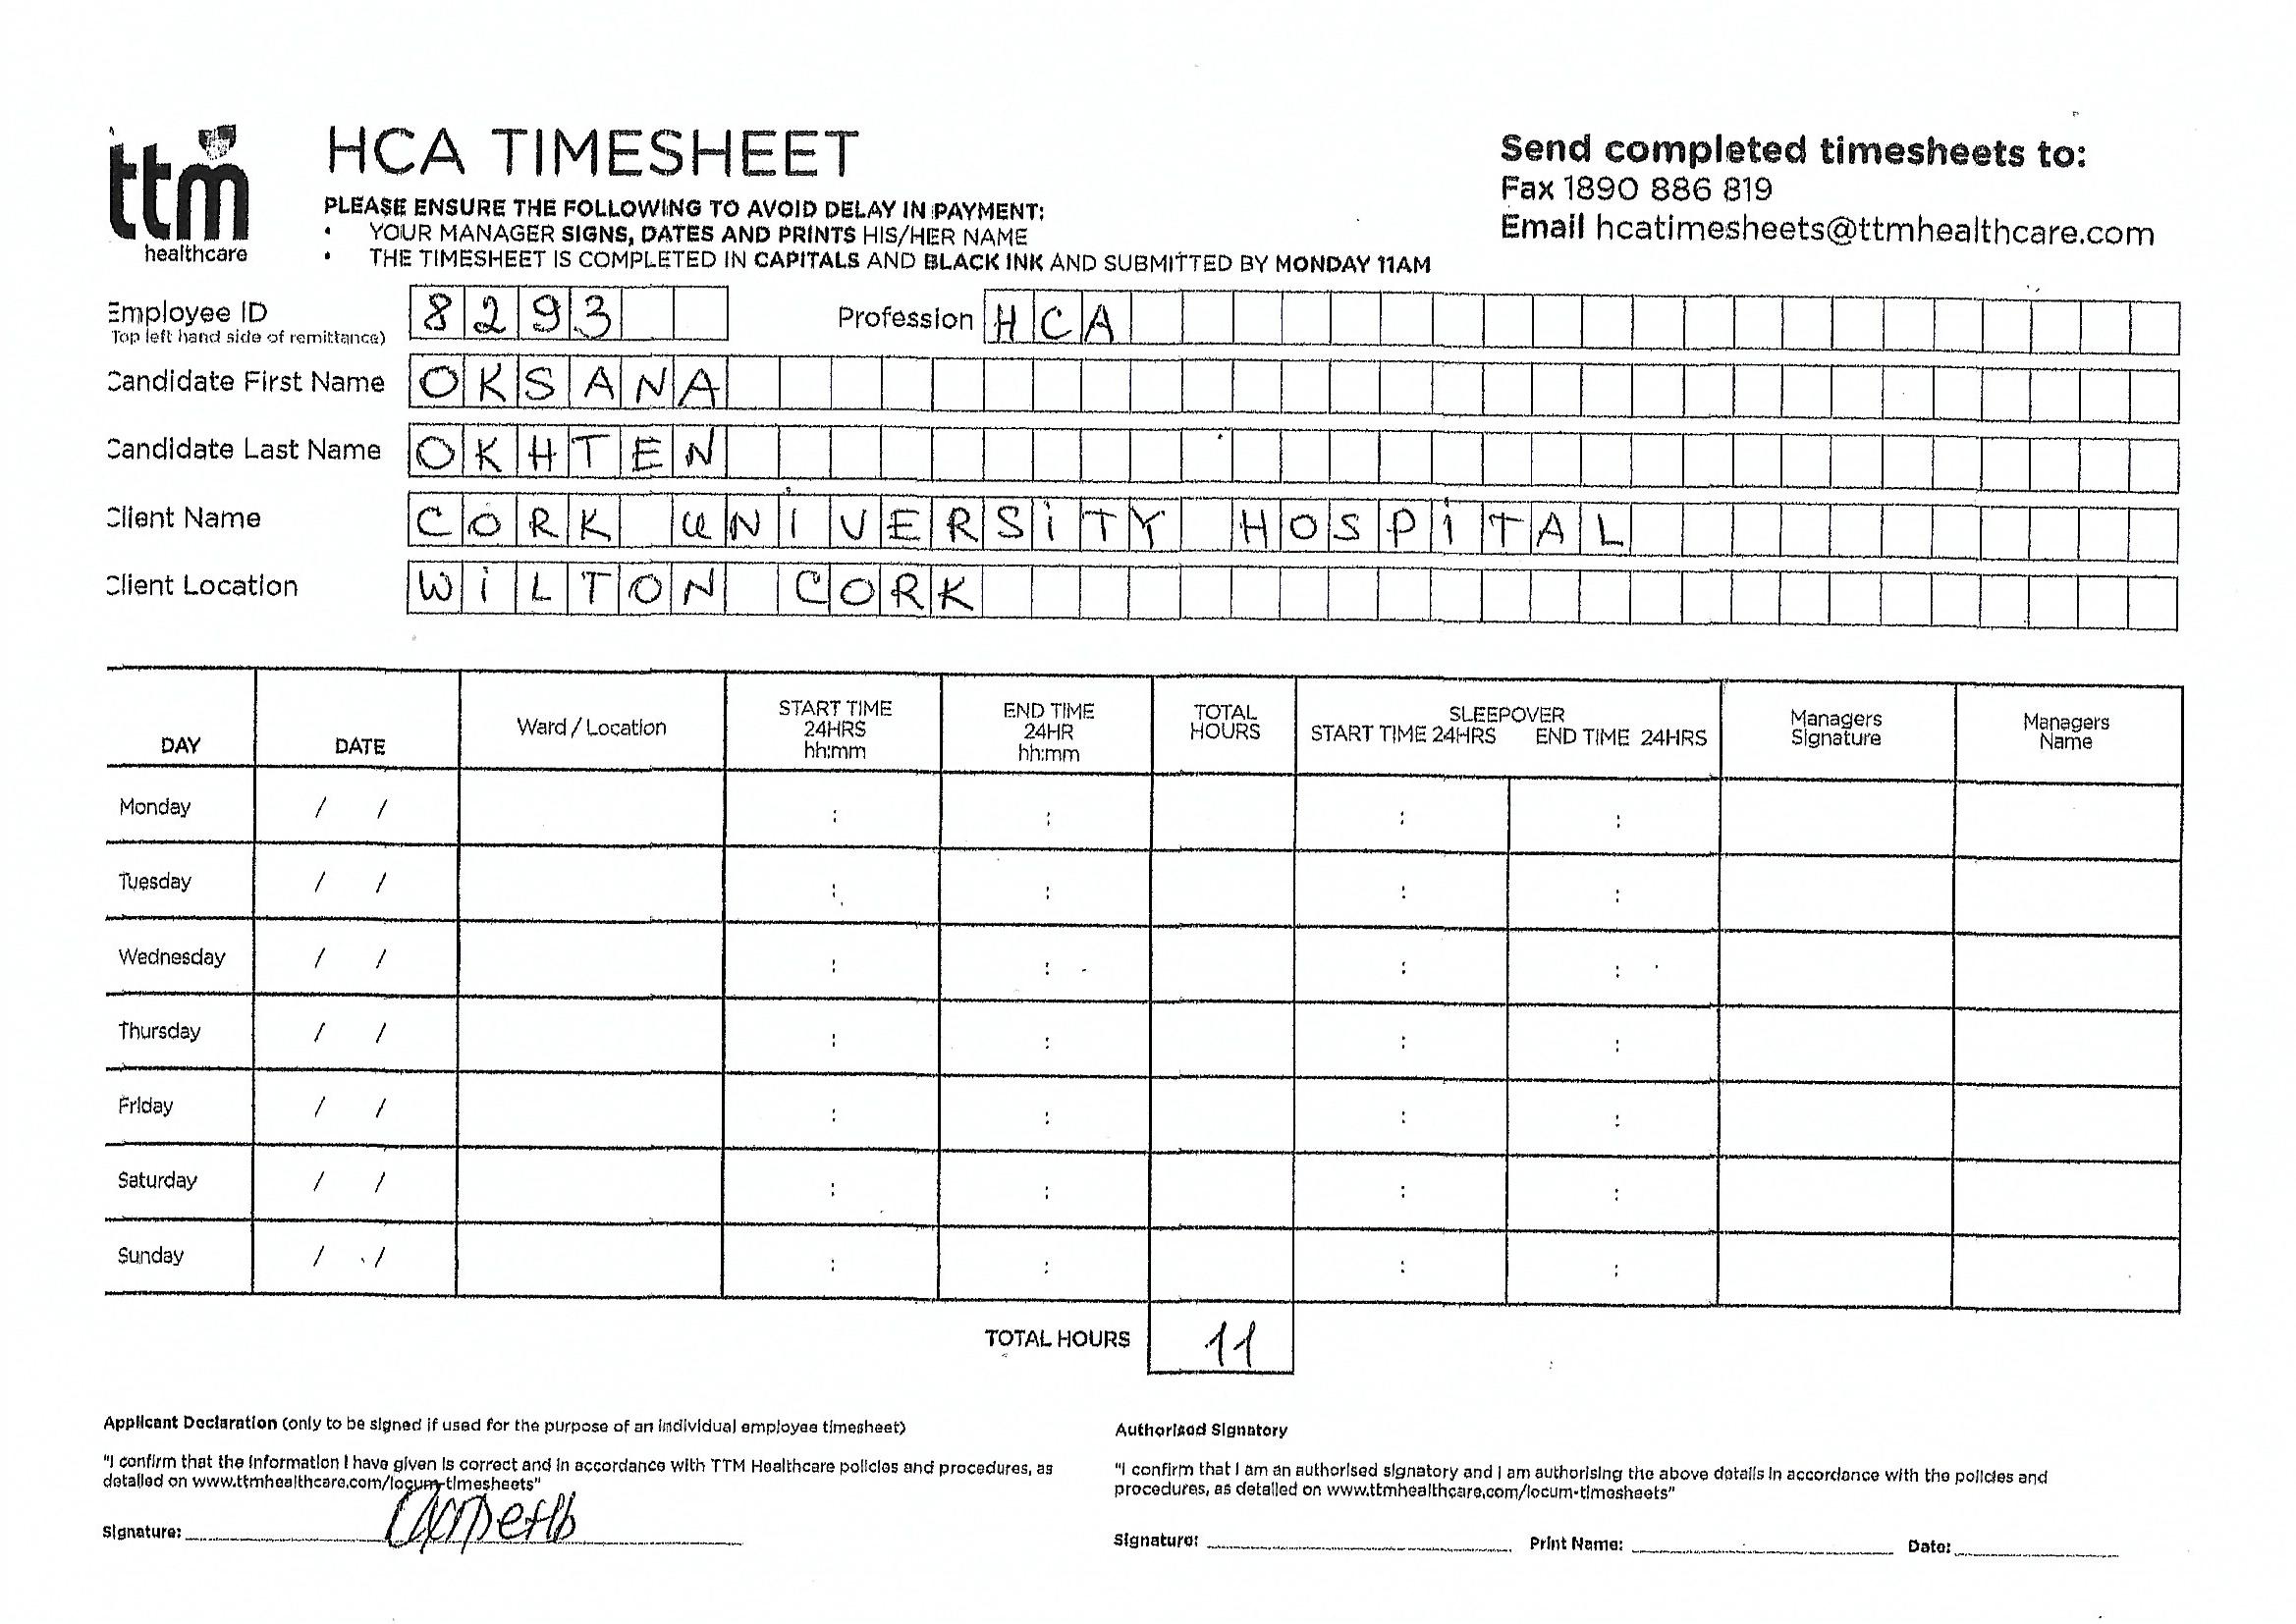 ttm
healthcare
HCA TIMESHEET
PLEASE ENSURE THE FOLLOWING TO AVOID DELAY IN PAYMENT:
• YOUR MANAGER SIGNS, DATES AND PRINTS HIS/HER NAME
• THE TIMESHEET IS COMPLETED IN CAPITALS AND BLACK INK AND SUBMITTED BY MONDAY 11AM
Send completed timesheets to:
Fax 1890 886 819
Email hcatimesheets@ttmhealthcare.com
Employee ID 8293 Profession HCA
Top left hand side of remittance)
Candidate First Name OKSANA
Candidate Last Name OKHTEN
Client Name CORK UNIVERSITY HOSPITAL
Client Location WILTON CORK
DAY DATE Ward / Location START TIME 24HRS hh:mm END TIME 24HR hh:mm TOTAL HOURS SLEEPOVER START TIME 24HRS END TIME 24HRS Managers Signature Managers Name
Monday / / : : : :
Tuesday / / : : : :
Wednesday / / : : : :
Thursday / / : : : :
Friday / / : : : :
Saturday / / : : : :
Sunday / / : : : :
TOTAL HOURS 11
Applicant Declaration (only to be signed if used for the purpose of an individual employee timesheet)
"I confirm that the information I have given is correct and in accordance with TTM Healthcare policies and procedures, as
detailed on www.ttmhealthcare.com/locum-timesheets"
Signature:
Authorised Signatory
"I confirm that I am an authorised signatory and I am authorising the above details in accordance with the policies and
procedures, as detailed on www.ttmhealthcare.com/locum-timesheets"
Signature: Print Name: Date: